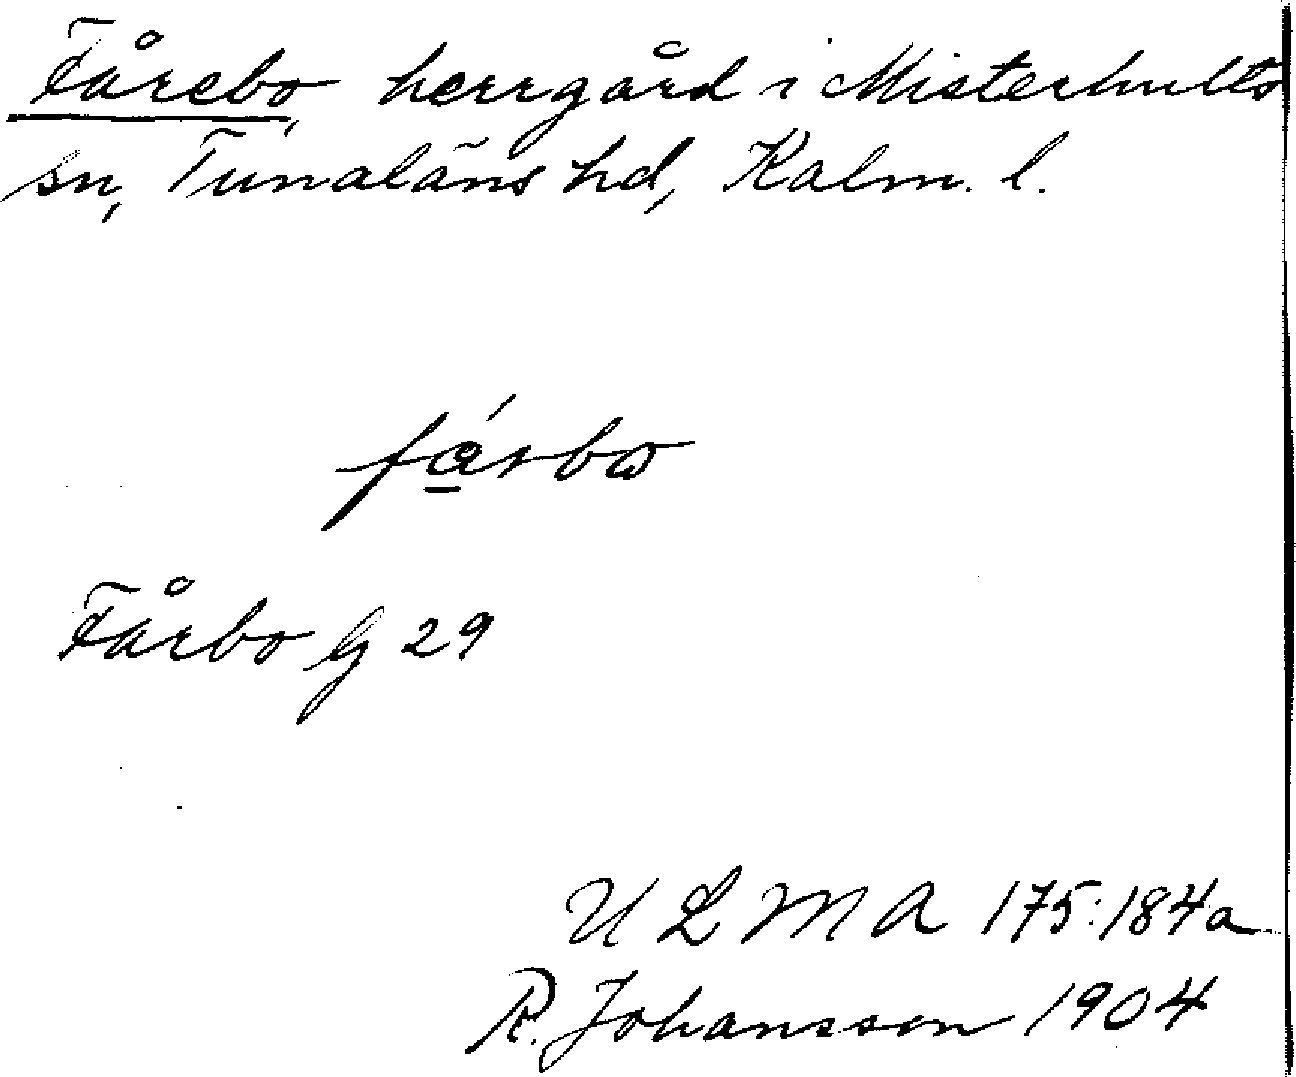 Fårebo, herrgård i Misterhults
sn, Tunaläns hd, Kalm. l.
fårbo
Fårbo G 29
ULMA 175:184a
R. Johansson 1904